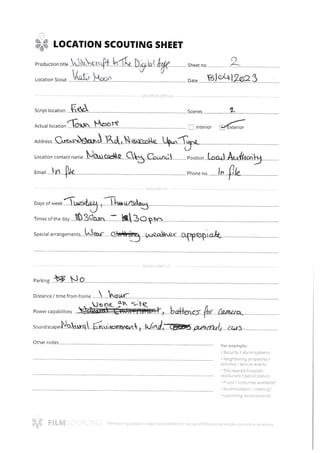 LOCATION SCOUTING SHEET
Production title Witchcraft In The Digital Age Sheet no. 2
Location Scout Katie Moon Date 18/04/2023
Script location Field Scenes 2
Actual location Town Moore Interior Exterior
Address Grandstand Rd, Newcastle Upon Tyne
Location contact name Newcastle City Council Position Local Authority
Email In file Phone no. In file
Days of week Tuesday, Thursday
Times of the day 10:30am - 1:30pm
Special arrangements Wear weather appropiate
Parking No
Distance / time from home 1 hour
None on site
Power capabilities , batteries for camera
Soundscape Natural Environment, wind, animal, cars
Other notes
For example:
• Security / alarm systems
• Neighboring properties /
activities / special events
• The nearest hospital /
restaurant / petrol station
• Props / costumes available?
• Accommodation / catering?
• Upcoming developments
FILMSOURCING